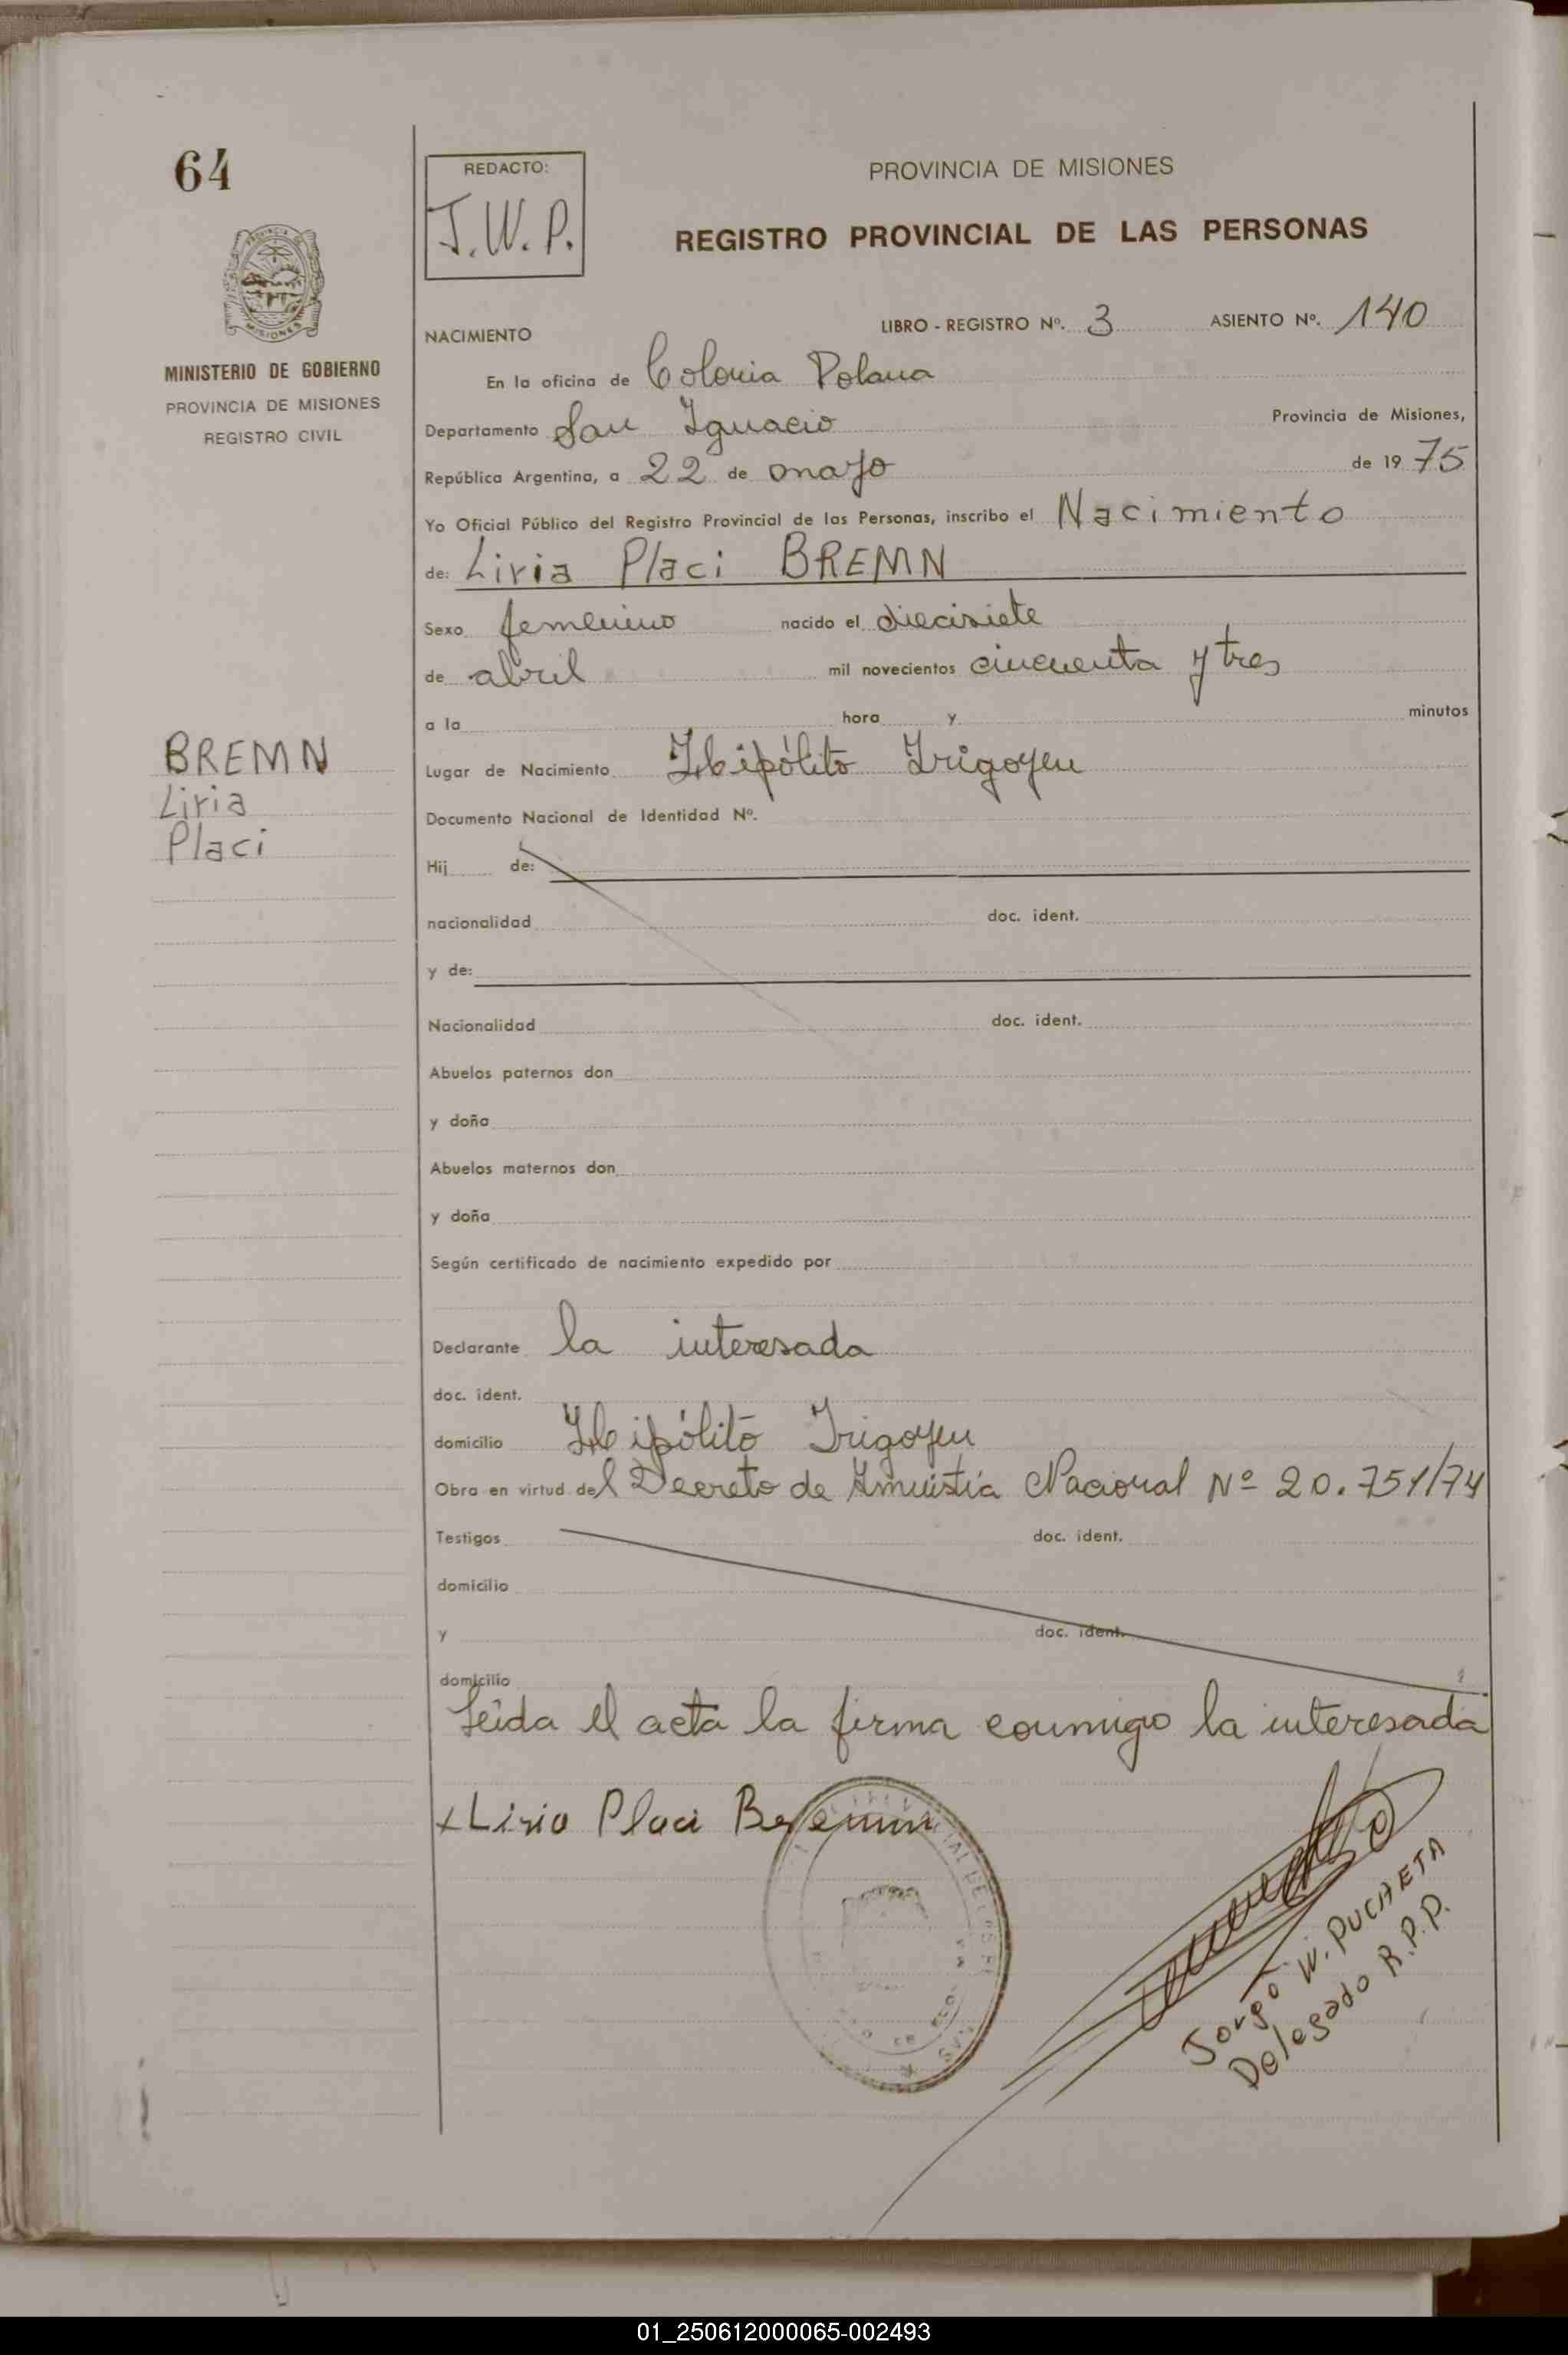 64
REDACTO:
J.W.P.
PROVINCIA DE MISIONES
REGISTRO PROVINCIAL DE LAS PERSONAS
MINISTERIO DE GOBIERNO
PROVINCIA DE MISIONES
REGISTRO CIVIL
NACIMIENTO
LIBRO - REGISTRO Nº. 3 ASIENTO Nº. 140
En la oficina de Colonia Polana
Departamento San Ignacio Provincia de Misiones,
República Argentina, a 22 de mayo de 19 75
Yo Oficial Público del Registro Provincial de las Personas, inscribo el Nacimiento
de: Liria Placi BREMN
Sexo femenino nacido el diecisiete
de abril mil novecientos cincuenta y tres
a la hora y minutos
BREMN
Liria
Placi
Lugar de Nacimiento Hipólito Irigoyen
Documento Nacional de Identidad Nº.
Hij de:
nacionalidad doc. ident.
y de:
Nacionalidad doc. ident.
Abuelos paternos don
y doña
Abuelos maternos don
y doña
Según certificado de nacimiento expedido por
Declarante la interesada
doc. ident.
domicilio Hipólito Irigoyen
Obra en virtud del Decreto de Amnistía Nacional Nº 20.751/74
Testigos doc. ident.
domicilio
y doc. ident.
domicilio
Leída el acta la firma conmigo la interesada
x Liria Placi
Jorge W. PUCHETA
Delegado R.P.P.
01_250612000065-002493